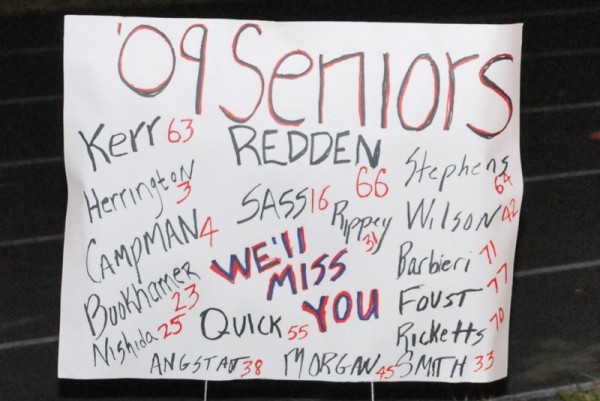 '09 Seniors
Kerr 63
REDDEN 66
Stephens 64
Herrington 3
SASS 16
Rippey 31
Wilson 42
CAMPMAN 4
WE'll
MISS
YOU
Barbieri 71
Buukhamer 23
Foust 77
Nishida 25
Quick 55
Ricketts 70
ANGSTAT 38
MORGAN 45
SMITH 33